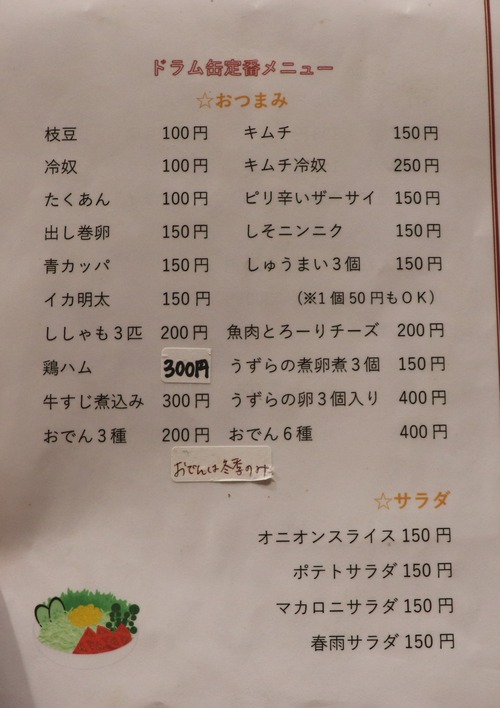 ドラム缶定番メニュー
☆おつまみ
枝豆 100円 キムチ 150円
冷奴 100円 キムチ冷奴 250円
たくあん 100円 ピリ辛いザーサイ 150円
出し巻卵 150円 しそニンニク 150円
青カッパ 150円 しゅうまい3個 150円
イカ明太 150円 (※1個50円もOK)
ししゃも3匹 200円 魚肉とろーりチーズ 200円
鶏ハム 300円 うずらの煮卵煮3個 150円
牛すじ煮込み 300円 うずらの卵3個入り 400円
おでん3種 200円 おでん6種 400円
おでんは冬季のみ
☆サラダ
オニオンスライス 150円
ポテトサラダ 150円
マカロニサラダ 150円
春雨サラダ 150円